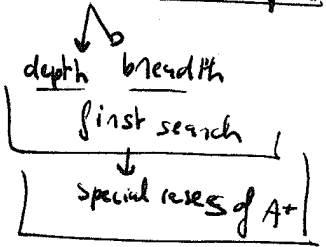 depth breadth
first search
special cases of A*